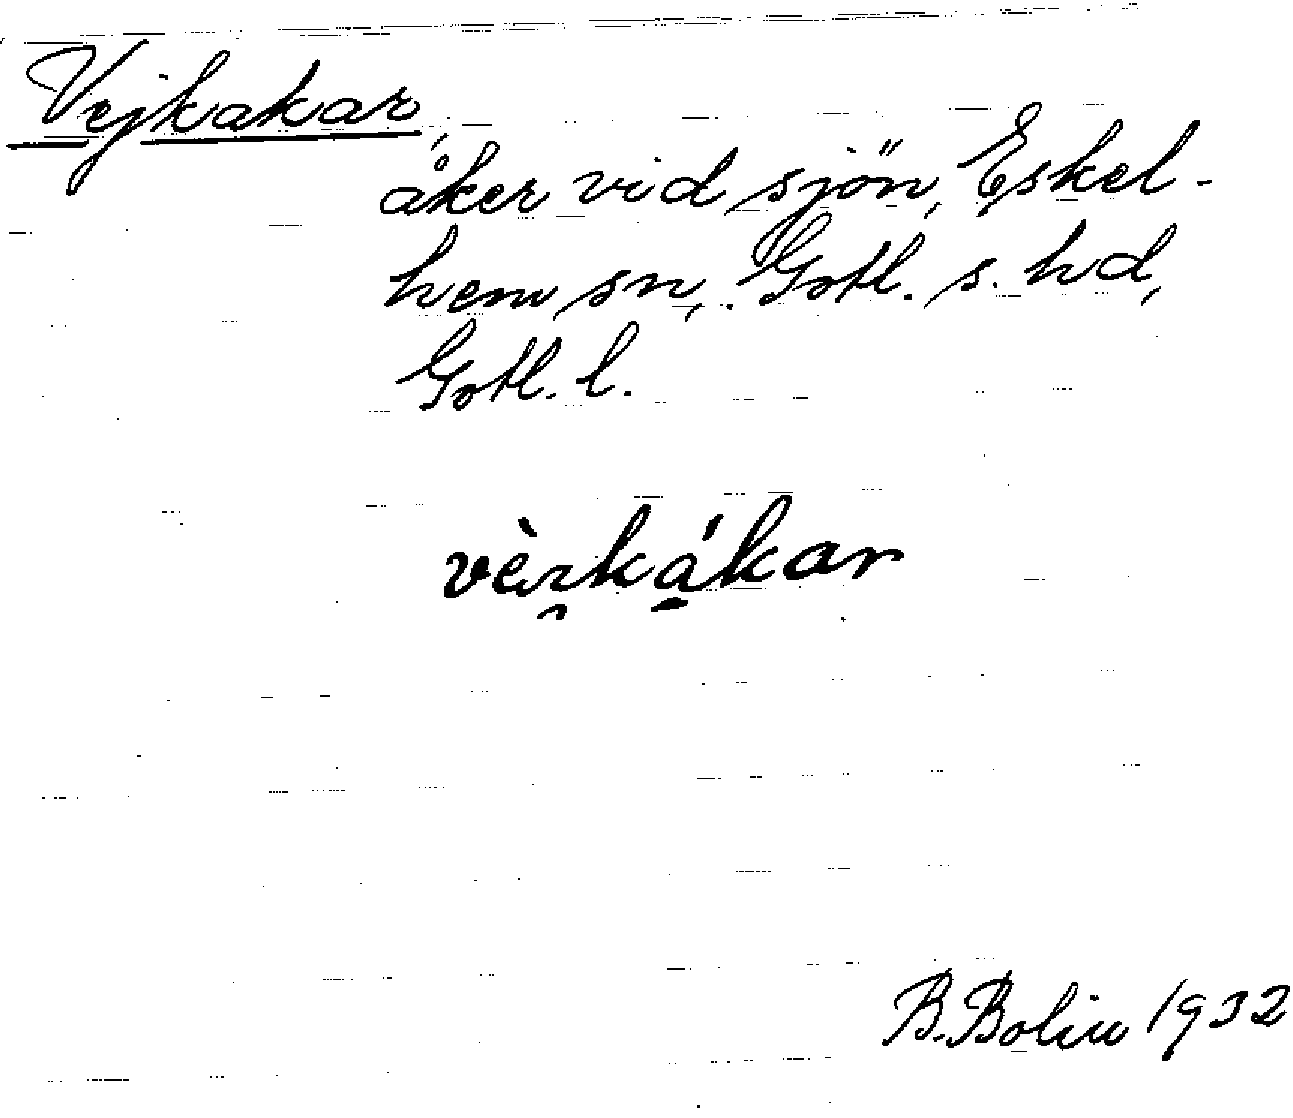 Vejkakar,
åker vid sjön, Eskel-
hem sn, Gotl. s. hd,
Gotl. l.
B. Bolin 1932